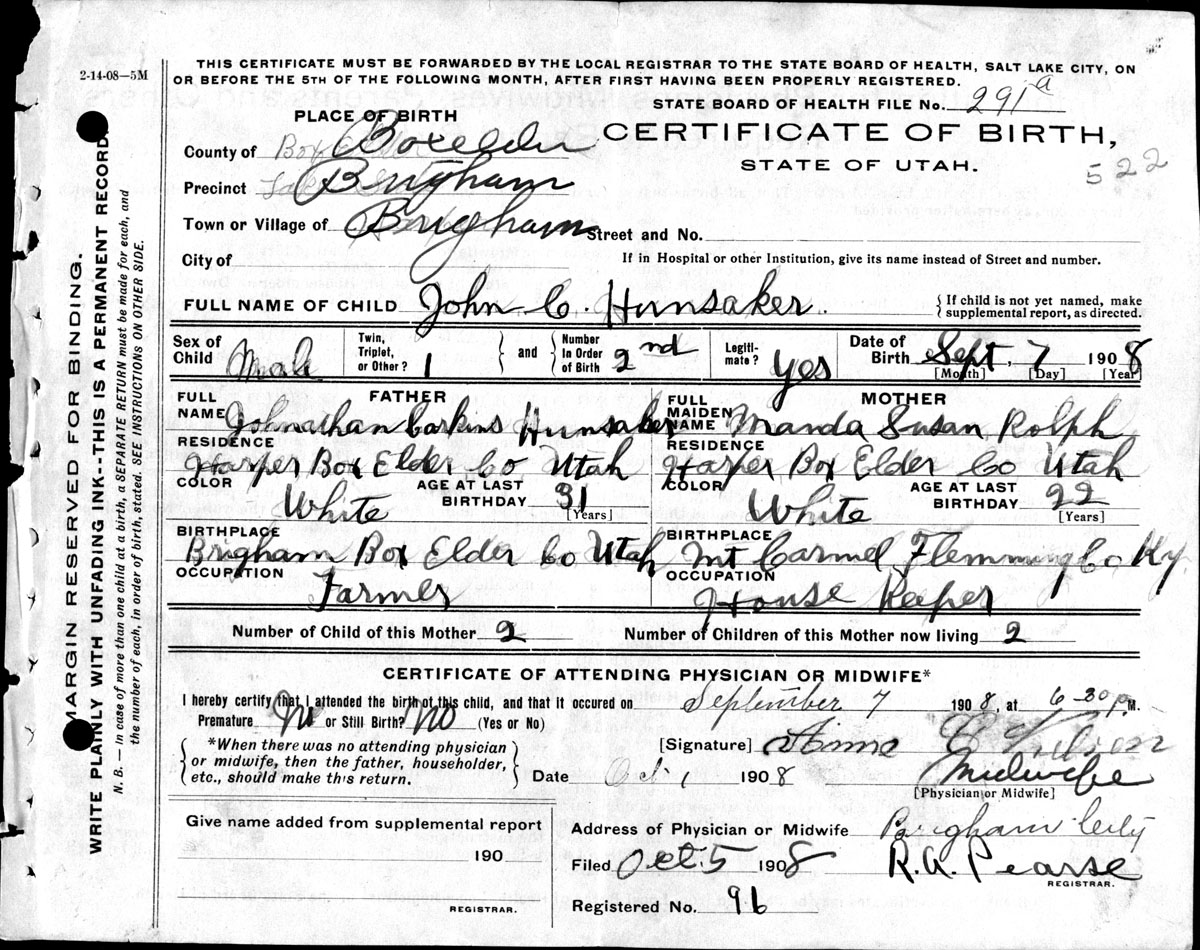 2-14-08—5M
THIS CERTIFICATE MUST BE FORWARDED BY THE LOCAL REGISTRAR TO THE STATE BOARD OF HEALTH, SALT LAKE CITY, ON
OR BEFORE THE 5TH OF THE FOLLOWING MONTH, AFTER FIRST HAVING BEEN PROPERLY REGISTERED.
STATE BOARD OF HEALTH FILE No. 291a
PLACE OF BIRTH
CERTIFICATE OF BIRTH,
STATE OF UTAH.
522
County of Boxelder
Precinct Brigham
Town or Village of Brigham Street and No.
City of If in Hospital or other Institution, give its name instead of Street and number.
FULL NAME OF CHILD John C. Hunsaker. { If child is not yet named, make
supplemental report, as directed.
Sex of Child Male Twin, Triplet, or Other? 1 } and { Number In Order of Birth 2nd Legiti- mate? yes Date of Birth Sept, 7 1908
[Month] [Day] [Year]
FATHER MOTHER
FULL NAME Johnathan Carkins Hunsaker FULL MAIDEN NAME Manda Susan Rolph
RESIDENCE RESIDENCE
Harper Box Elder Co Utah Harper Box Elder Co Utah
COLOR White AGE AT LAST BIRTHDAY 31 [Years] COLOR White AGE AT LAST BIRTHDAY 22 [Years]
BIRTHPLACE BIRTHPLACE
Brigham Box Elder Co Utah Mt Carmel Flemming Co Ky.
OCCUPATION OCCUPATION
Farmer House Keeper
Number of Child of this Mother 2 Number of Children of this Mother now living 2
CERTIFICATE OF ATTENDING PHYSICIAN OR MIDWIFE*
I hereby certify that I attended the birth of this child, and that it occured on September 7 1908, at 6-30 P.M.
Premature No or Still Birth? No (Yes or No)
{ *When there was no attending physician
or midwife, then the father, householder,
etc., should make this return. }
[Signature]
Date Oct 1 1908 Midwife
[Physician or Midwife]
Give name added from supplemental report
190
REGISTRAR.
Address of Physician or Midwife Brigham City
Filed Oct 5 1908 R. A. Pearse
REGISTRAR.
Registered No. 96
MARGIN RESERVED FOR BINDING.
WRITE PLAINLY WITH UNFADING INK--THIS IS A PERMANENT RECORD.
N. B. — In case of more than one child at a birth, a SEPARATE RETURN must be made for each, and
the number of each, in order of birth, stated. SEE INSTRUCTIONS ON OTHER SIDE.